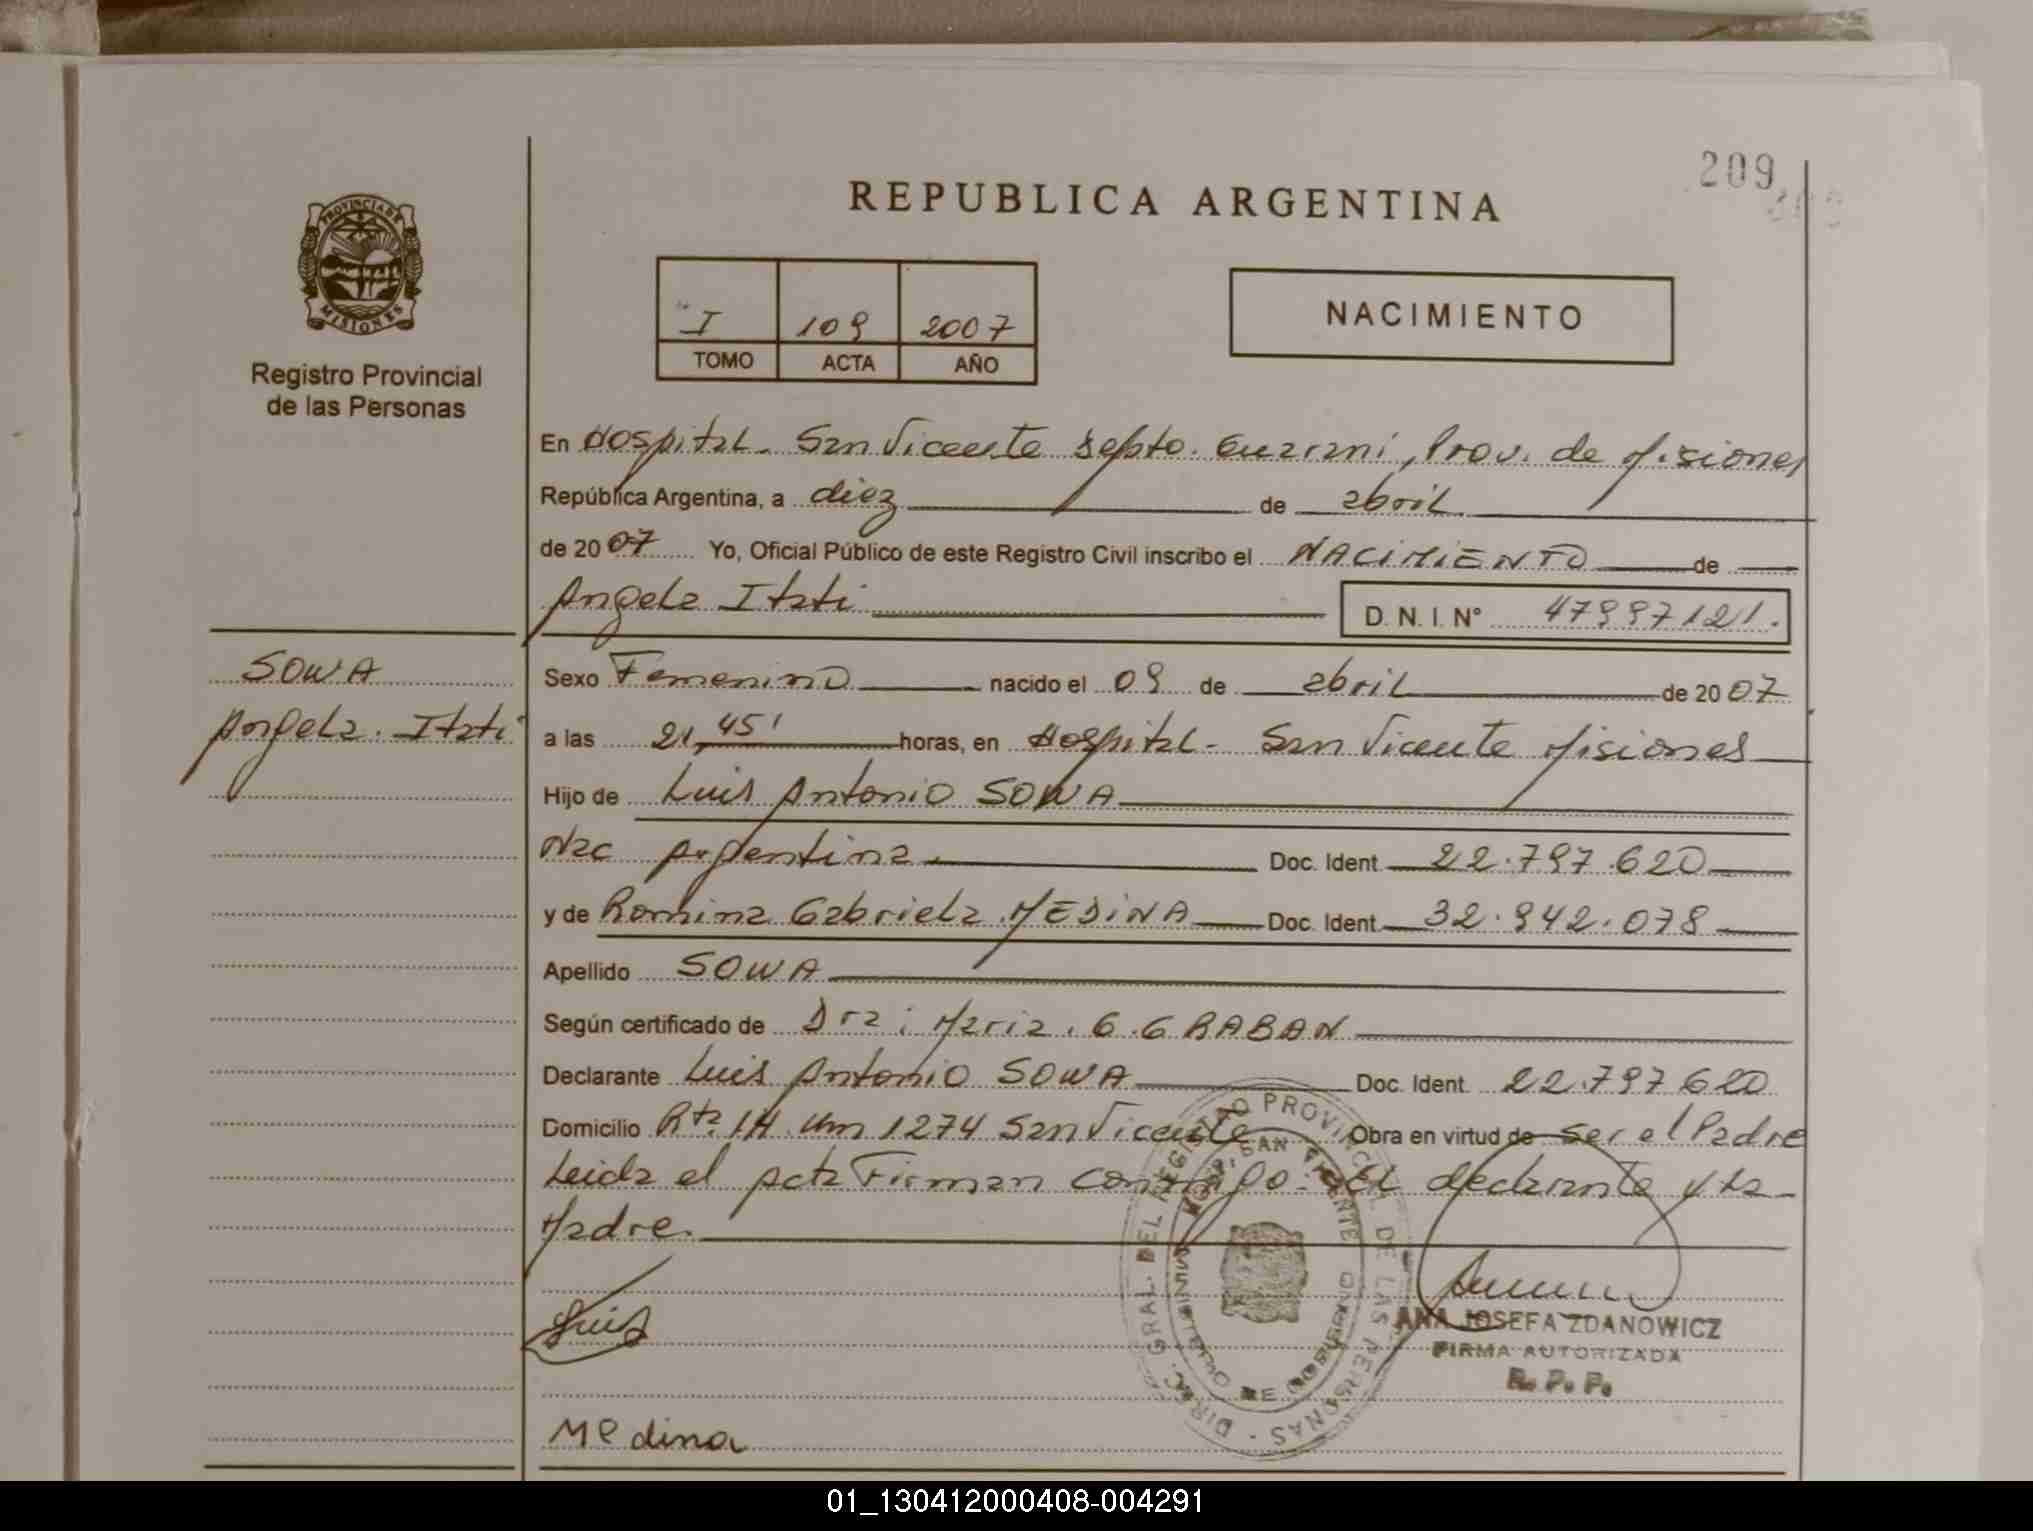 209
REPUBLICA ARGENTINA
PROVINCIA DE MISIONES
Registro Provincial
de las Personas
I 109 2007
TOMO ACTA AÑO
NACIMIENTO
En Hospital - San Vicente Depto. Guarani, Prov. de Misiones
República Argentina, a diez de abril
de 2007 Yo, Oficial Público de este Registro Civil inscribo el NACIMIENTO de
Angela Itati D. N. I. N° 47997121.
SOWA
Angela. Itati
Sexo Femenino nacido el 09 de abril de 2007
a las 21,45' horas, en Hospital - San Vicente Misiones
Hijo de Luis Antonio SOWA
Nac Argentina Doc. Ident. 22.797.620
y de Romina Gabriela MEDINA Doc. Ident. 32.942.078
Apellido SOWA
Según certificado de Dra: Maria. G. GRABAN
Declarante Luis Antonio SOWA Doc. Ident. 22.797.620
Domicilio Rta. 14 Km 1274 San Vicente Obra en virtud de ser el Padre
Leida el acta Firman conmigo. El declarante y la
Madre.
Luis
DIREC. GRAL. DEL REGISTRO PROVINCIAL DE LAS PERSONAS
HOSP. SAN VICENTE
MINIST. DE GOBIERNO
ANA JOSEFA ZDANOWICZ
FIRMA AUTORIZADA
R. P. P.
Medina
01_130412000408-004291